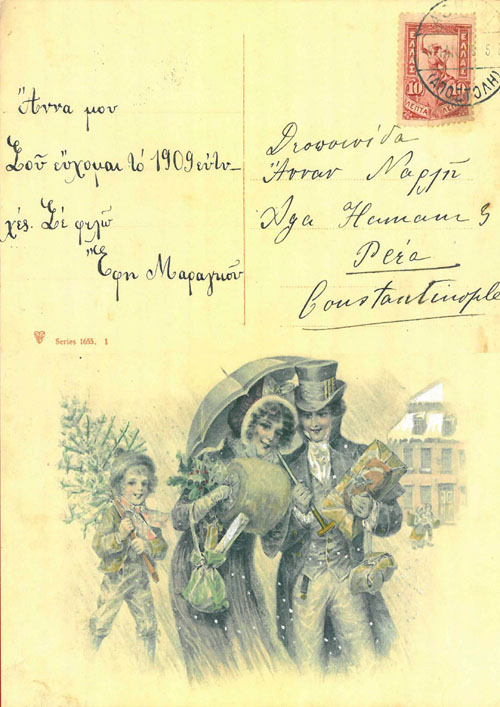 Ἄννα μου
Σοῦ εὔχομαι τό 1909 εὐτυ-
χές. Σέ φιλῶ
Ἔφη Μαραγκοῦ
Δεσποινίδα
Ἄνναν
Aga Hamam 9
Péra
Constantinople
ΕΛΛΑΣ
ΕΛΛΑΣ
10
10
ΛΕΠΤΑ
Series 1655. 1